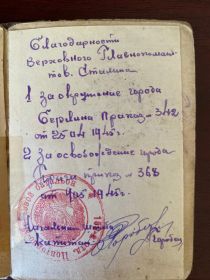 Благодарности
Верховного Главнокоман
тов. Сталина
1 За окружение города
Берлина Приказ - 342
от 25 04 1945г
2 За освобождение города
приказ - 368
от 9 05 1945г.
Начальник штаба
капитан